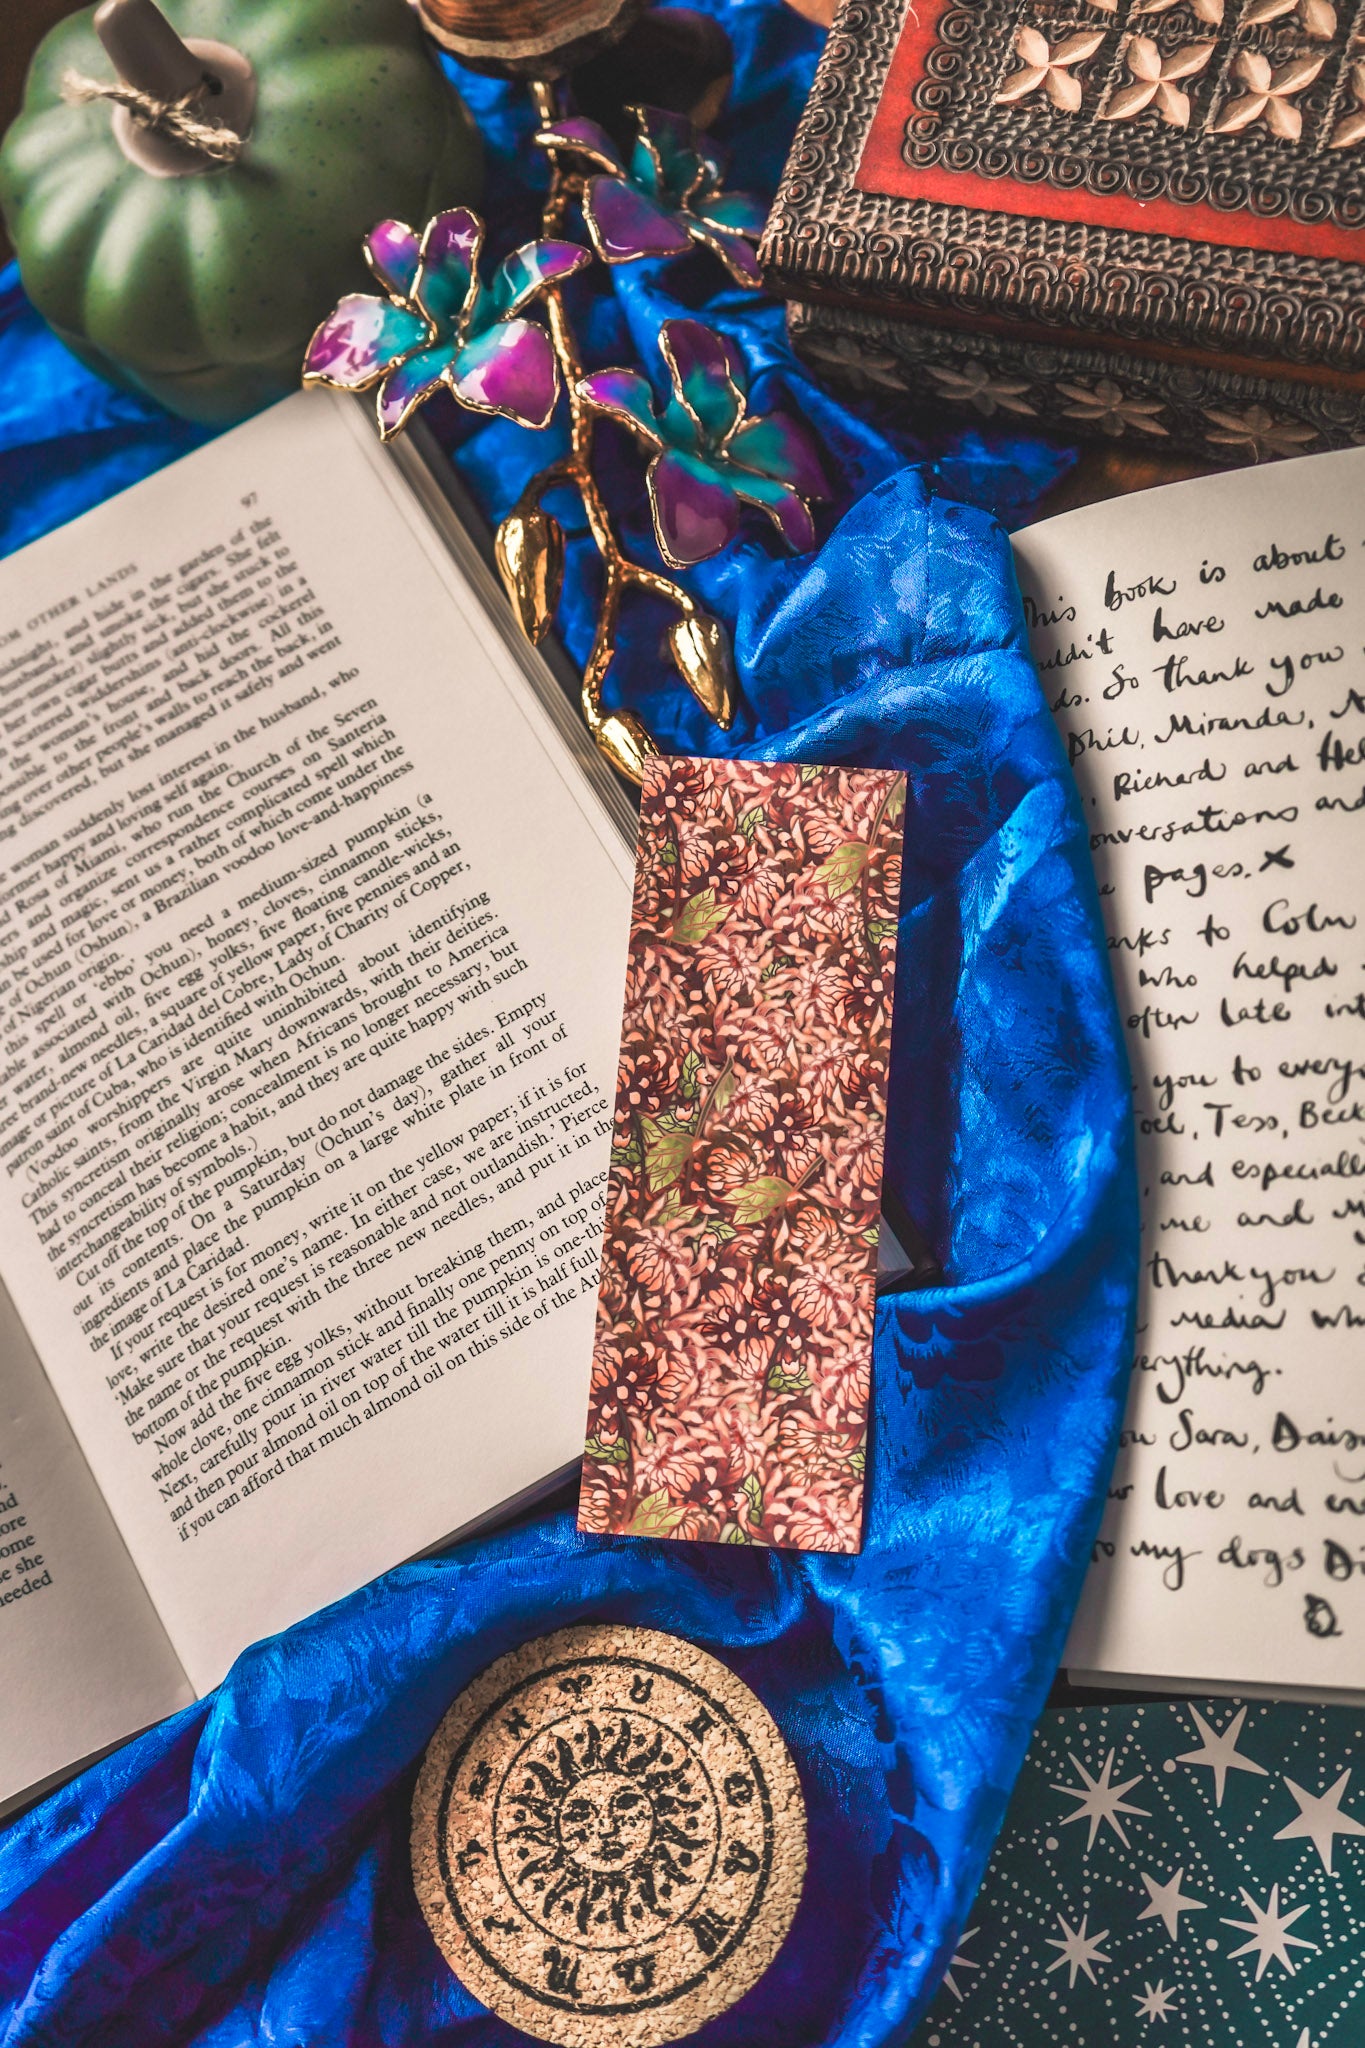 97
OM OTHER LANDS
midnight, and hide in the garden of the
husband, and smoke the cigars. She felt
om-smoker) slightly sick, but she stuck to
her own cigar butts and added them to the
n scattered widdershins (anti-clockwise) in a
the woman's house, and hid the cockerel
possible to the front and back doors. All this
ng over other people's walls to reach the back, in
ng discovered, but she managed it safely and went
e woman suddenly lost interest in the husband, who
former happy and loving self again.
d Rosa of Miami, who run the Church of the Seven
ers and organize correspondence courses on Santeria
ship and magic, sent us a rather complicated spell which
be used for love or money, both of which come under the
s of Ochun (Oshun), a Brazilian voodoo love-and-happiness
of Nigerian origin.
this spell or 'ebbo' you need a medium-sized pumpkin (a
table associated with Ochun), honey, cloves, cinnamon sticks,
r water, almond oil, five egg yolks, five floating candle-wicks,
e brand-new needles, a square of yellow paper, five pennies and an
image or picture of La Caridad del Cobre, Lady of Charity of Copper,
patron saint of Cuba, who is identified with Ochun.
(Voodoo worshippers are quite uninhibited about identifying
Catholic saints, from the Virgin Mary downwards, with their deities.
This syncretism originally arose when Africans brought to America
had to conceal their religion; concealment is no longer necessary, but
the syncretism has become a habit, and they are quite happy with such
interchangeability of symbols.)
Cut off the top of the pumpkin, but do not damage the sides. Empty
out its contents. On a Saturday (Ochun's day), gather all your
ingredients and place the pumpkin on a large white plate in front of
the image of La Caridad.
If your request is for money, write it on the yellow paper; if it is for
love, write the desired one's name. In either case, we are instructed,
'Make sure that your request is reasonable and not outlandish.' Pierce
the name or the request with the three new needles, and put it in the
bottom of the pumpkin.
Now add the five egg yolks, without breaking them, and place
whole clove, one cinnamon stick and finally one penny on top of
Next, carefully pour in river water till the pumpkin is one-thi
and then pour almond oil on top of the water till it is half full
if you can afford that much almond oil on this side of the Atl
nd
ore
ome
se she
needed
This book is about
uldn't have made
ds. So thank you
Phil, Miranda, N
, Richard and Hel
onversations and
e pages. x
anks to Colm
who helped
often late int
you to every
Joel, Tess, Beck
, and especiall
me and My
thank you
media wh
verything.
ou Sara, Daisy
love and en
to my dogs D